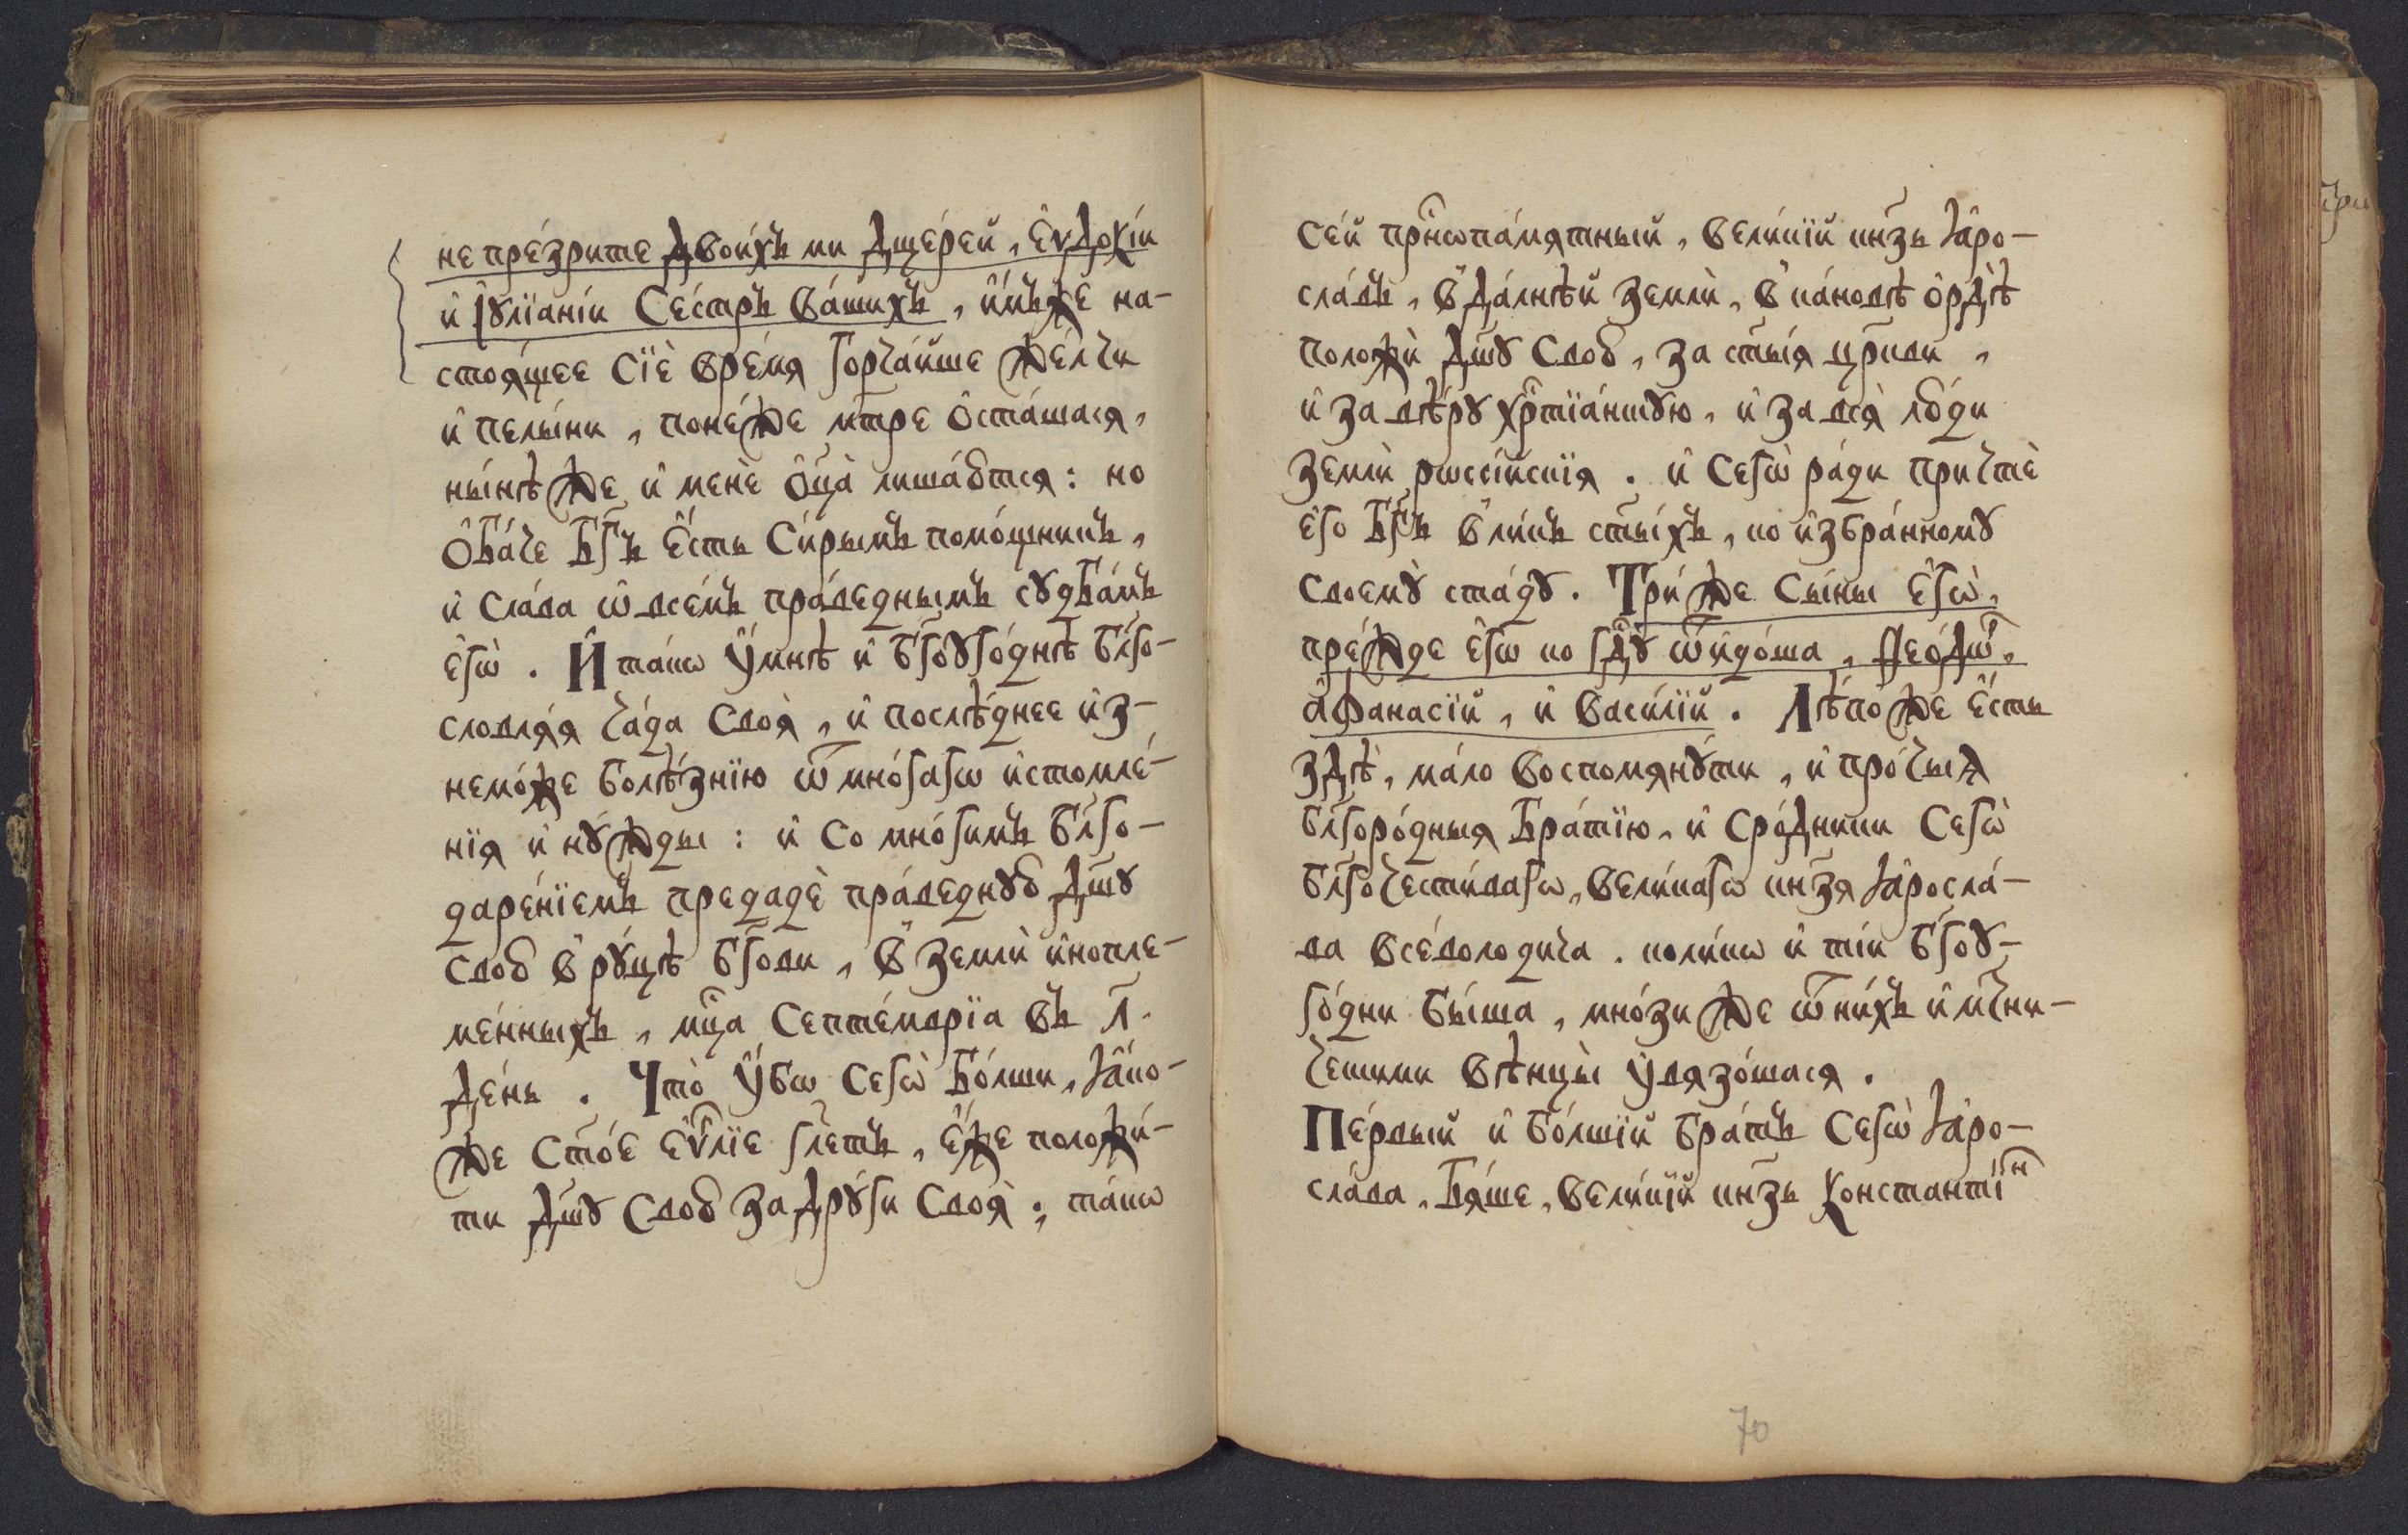 не пре́зрите двои́хъ ми дщере́й, Еѵдокі́и
и҆ І҆ꙋлїані́и Се́стръ ва́шихъ, и҆́мъже на-
стоѧ́щее Сїѐ вре́мѧ горча́йше же́лчи
и҆ пелы́ни, поне́же мт҃ре ѻ҆ста́шасѧ,
ны́нѣ же и҆ менѐ ѻ҆ц҃а̀ лиша́ютсѧ: но
ѻ҆ба́че Бг҃ъ є҆́сть Си́рымъ помо́щникъ,
и҆ Сла́ва ѡ҆ все́мъ пра́веднымъ сꙋдба́мъ
є҆гѡ̀. И҆ та́кѡ ᲂу҆́мнѣ и҆ бг҃оꙋго́днѣ бл҃го-
словлѧ́ѧ ча́да Своѧ̀, и҆ послѣ́днее и҆з-
немо́же болѣ́знїю ѿ мно́гагѡ и҆стомле́-
нїѧ и҆ нꙋ́жды: и҆ Со мно́гимъ бл҃го-
даре́нїемъ предадѐ пра́веднꙋю дш҃ꙋ
Свою̀ в рꙋ́цѣ бг҃ови, в землѝ и҆нопле-
ме́нныхъ, мц҃а Септе́мврїа въ л҃.
де́нь. Что̀ ᲂу҆́бѡ Сегѡ̀ бо́лши, ꙗ҆́ко-
же Ст҃о́е є҆ѵⷢ҇лїе гл҃етъ, є҆́же положи́-
ти дш҃ꙋ Свою̀ за дрꙋ́ги Своѧ̀; та́кѡ
Се́й прⷭ҇нѡпа́мѧтный, вели́кїй кнѕ҃ь ꙗ҆ро-
сла́въ, в да́лнѣй землѝ, в ка́новѣ ѻ҆рдѣ̀
положѝ дш҃ꙋ Свою̀, за ст҃ы́ѧ цр҃кви,
и҆ за вѣ́рꙋ хрⷭ҇тїа́нскꙋю, и҆ за всѧ̀ лю́ди
землѝ рѡссі́йскїѧ. и҆ Сегѡ̀ ра́ди причтѐ
є҆го̀ Бг҃ъ в ли́къ ст҃ы́хъ, ко и҆збра́нномꙋ
своемꙋ̀ ста́дꙋ. Три́ же Сы́ны є҆гѡ̀,
пре́жде є҆гѡ̀ ко гдⷭ҇ꙋ ѿидо́ша, Ѳео́дѡⷬ,
а҆фана́сїй, и҆ Васи́лїй. Лѣ́по же є҆́сть
здѣ̀, ма́ло воспомѧнꙋ́ти, и҆ про́чыѧ
бл҃горо́дныѧ Бра́тїю, и҆ Сро́дники Сегѡ̀
бл҃гочести́вагѡ, вели́кагѡ кнѕ҃ѧ ꙗ҆росла́-
ва все́володича. коли́кѡ и҆ ті́и бг҃оꙋ-
го́дни бы́ша, мно́зи же ѿ ни́хъ и҆ мч҃ни-
ческими вѣнцы̀ ᲂу҆вѧзо́шасѧ.
Пе́рвый и҆ бо́лшїй бра́тъ Сегѡ̀ ꙗ҆ро-
сла́ва, бѧ́ше, вели́кїй кнѕ҃ь Константі́ⷩ
70